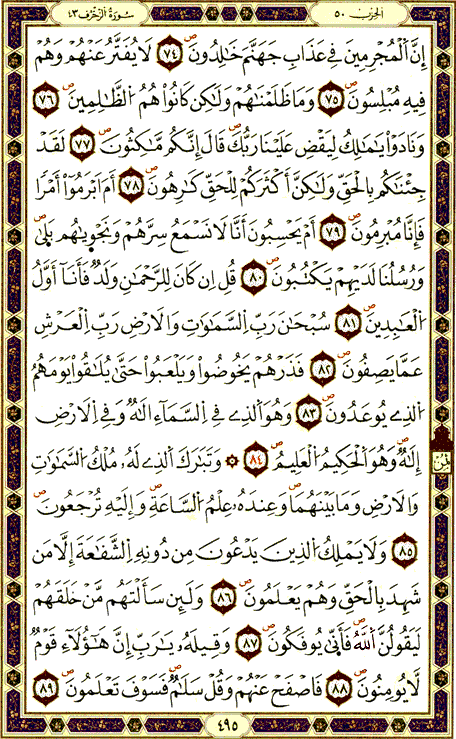 الحزب ٥٠
سورة الزخرف ٤٣
إِنَّ اَلْمُجْرِمِينَ فِي عَذَابِ جَهَنَّمَ خَٰلِدُونَ ٧٤ لَا يُفَتَّرُ عَنْهُمْ وَهُمْ
فِيهِ مُبْلِسُونَ ٧٥ وَمَا ظَلَمْنَٰهُمْ وَلَٰكِن كَانُوا۟ هُمُ اُلظَّٰلِمِينَ ٧٦
وَنَادَوْا۟ يَٰمَٰلِكُ لِيَقْضِ عَلَيْنَا رَبُّكَ قَالَ إِنَّكُم مَّٰكِثُونَ ٧٧ لَقَدْ
جِئْنَٰكُم بِالْحَقِّ وَلَٰكِنَّ أَكْثَرَكُمْ لِلْحَقِّ كَٰرِهُونَ ٧٨ أَمَ اَبْرَمُوا۟ أَمْرًا
فَإِنَّا مُبْرِمُونَ ٧٩ أَمْ يَحْسِبُونَ أَنَّا لَا نَسْمَعُ سِرَّهُمْ وَنَجْوَىٰهُم بَلَىٰ
وَرُسُلُنَا لَدَيْهِمْ يَكْتُبُونَ ٨٠ قُلِ اِن كَانَ لِلرَّحْمَٰنِ وَلَدٌ فَأَنَآ أَوَّلُ
اُلْعَٰبِدِينَ ٨١ سُبْحَٰنَ رَبِّ اِلسَّمَٰوَٰتِ وَالَارْضِ رَبِّ اِلْعَرْشِ
عَمَّا يَصِفُونَ ٨٢ فَذَرْهُمْ يَخُوضُوا۟ وَيَلْعَبُوا۟ حَتَّىٰ يُلَٰقُوا۟ يَوْمَهُمُ
اُلذِي يُوعَدُونَ ٨٣ وَهُوَ اَلذِي فِي اِلسَّمَآءِ اِلَٰهٌ وَفِي اِلَارْضِ
إِلَٰهٌ وَهُوَ اَلْحَكِيمُ اُلْعَلِيمُ ٨٤ ۞ وَتَبَٰرَكَ اَلذِي لَهُۥ مُلْكُ اُلسَّمَٰوَٰتِ
ثمن
وَالَارْضِ وَمَا بَيْنَهُمَا وَعِندَهُۥ عِلْمُ اُلسَّاعَةِ وَإِلَيْهِ تُرْجَعُونَ
٨٥ وَلَا يَمْلِكُ اُلذِينَ يَدْعُونَ مِن دُونِهِ اِلشَّفَٰعَةَ إِلَّا مَن
شَهِدَ بِالْحَقِّ وَهُمْ يَعْلَمُونَ ٨٦ وَلَئِن سَأَلْتَهُم مَّنْ خَلَقَهُمْ
لَيَقُولُنَّ اَللَّهُ فَأَنَّىٰ يُوفَكُونَ ٨٧ وَقِيلَهُۥ يَٰرَبِّ إِنَّ هَٰٓؤُلَآءِ قَوْمٌ
لَّا يُومِنُونَ ٨٨ فَاصْفَحْ عَنْهُمْ وَقُلْ سَلَٰمٌ فَسَوْفَ تَعْلَمُونَ ٨٩
٤٩٥